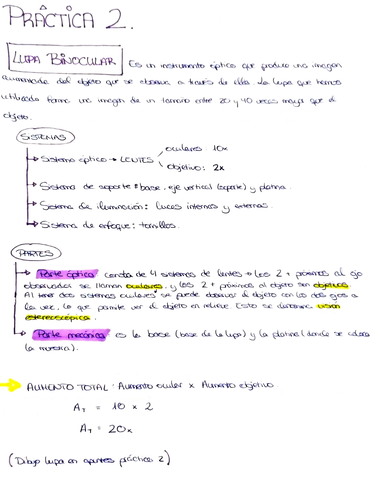 PRÁCTICA 2.
LUPA BINOCULAR Es un instrumento óptico que produce una imagen
aumentada del objeto que se observa a través de ella. La lupa que hemos
utilizado forma una imagen de un tamaño entre 20 y 40 veces mayor que el
objeto.
SISTEMAS
oculares: 10x
Sistema óptico → LENTES
objetivo: 2x
Sistema de soporte: base, eje vertical (soporte) y platina.
Sistema de iluminación: luces internas y externas.
Sistema de enfoque: tornillos.
PARTES
Parte óptica consta de 4 sistemas de lentes → los 2 + próximos al ojo
observador se llaman oculares, y los 2 + próximos al objeto son objetivos.
Al tener dos sistemas oculares se puede observar el objeto con los dos ojos a
la vez, lo que permite ver el objeto en relieve. Esto se denomina visión
estereoscópica.
Parte mecánica es la base (base de la lupa) y la platina (donde se coloca
la muestra).
→ AUMENTO TOTAL: Aumento ocular x Aumento objetivo
AT = 10 x 2
AT = 20x
(Dibujo lupa en apuntes práctica 2)